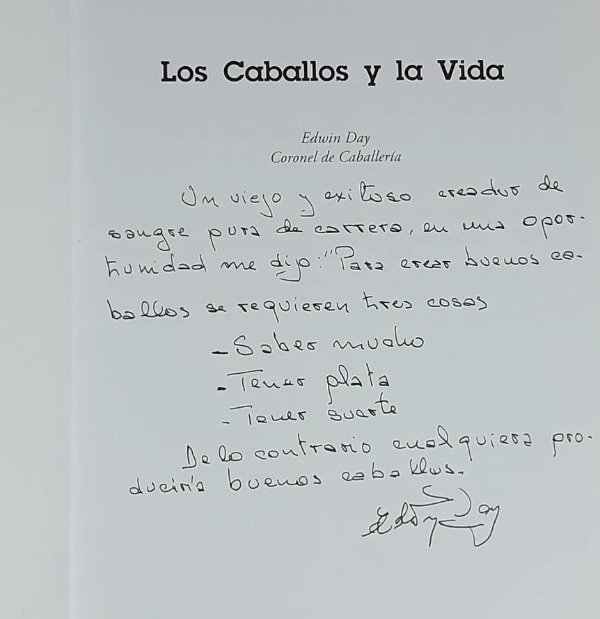 Los Caballos y la Vida
Edwin Day
Coronel de Caballería
Un viejo y exitoso creador de
sangre pura de carrera, en una opor-
tunidad me dijo: "Para crear buenos ca-
ballos se requieren tres cosas
- Saber mucho
- Tener plata
- Tener suerte
De lo contrario cualquiera pro-
duciría buenos caballos.
Day